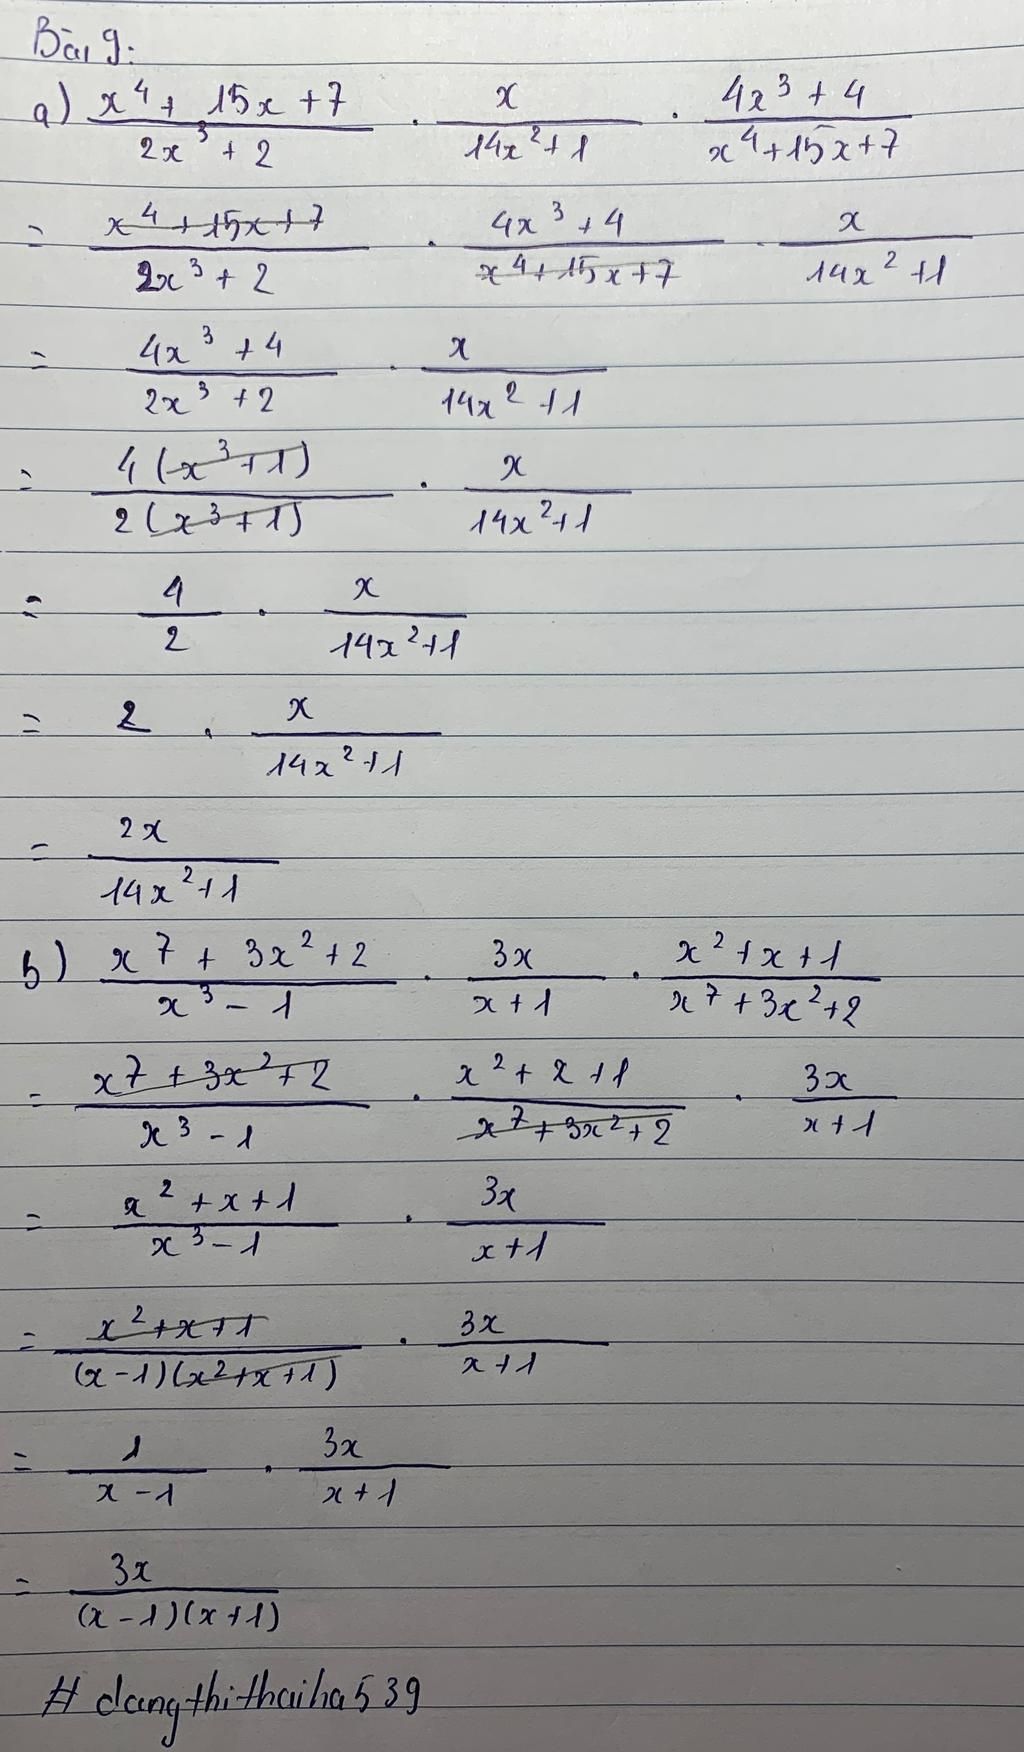 Bài 9:
a) \frac{x^4 + 15x + 7}{2x^3 + 2} . \frac{x}{14x^2 + 1} . \frac{4x^3 + 4}{x^4 + 15x + 7}
= \frac{x^4 + 15x + 7}{2x^3 + 2} . \frac{4x^3 + 4}{x^4 + 15x + 7} . \frac{x}{14x^2 + 1}
= \frac{4x^3 + 4}{2x^3 + 2} . \frac{x}{14x^2 + 1}
= \frac{4(x^3 + 1)}{2(x^3 + 1)} . \frac{x}{14x^2 + 1}
= \frac{4}{2} . \frac{x}{14x^2 + 1}
= 2 . \frac{x}{14x^2 + 1}
= \frac{2x}{14x^2 + 1}
b) \frac{x^7 + 3x^2 + 2}{x^3 - 1} . \frac{3x}{x + 1} . \frac{x^2 + x + 1}{x^7 + 3x^2 + 2}
= \frac{x^7 + 3x^2 + 2}{x^3 - 1} . \frac{x^2 + x + 1}{x^7 + 3x^2 + 2} . \frac{3x}{x + 1}
= \frac{x^2 + x + 1}{x^3 - 1} . \frac{3x}{x + 1}
= \frac{x^2 + x + 1}{(x - 1)(x^2 + x + 1)} . \frac{3x}{x + 1}
= \frac{1}{x - 1} . \frac{3x}{x + 1}
= \frac{3x}{(x - 1)(x + 1)}
# dangthithaiha539